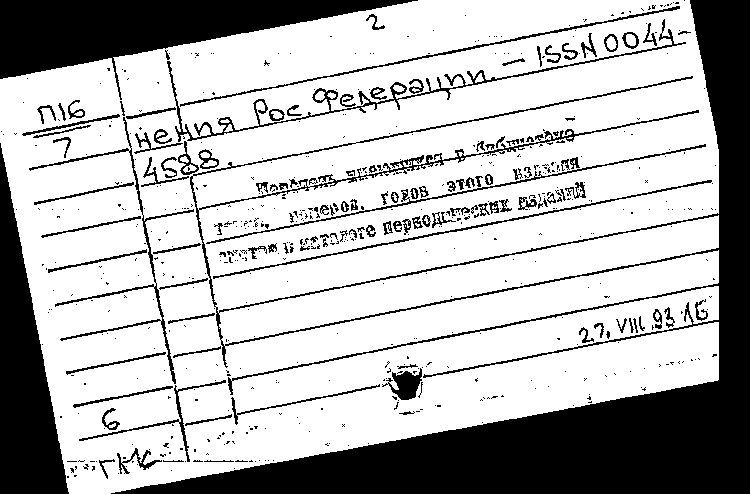 2
П16
7
нения Рос. Федерации. – ISSN 0044-
4588.
Перечень имеющихся в библиотеке
томов, номеров, годов этого издания
смотри в каталоге периодических изданий
27.VIII.93 ЛБ
6
ГК